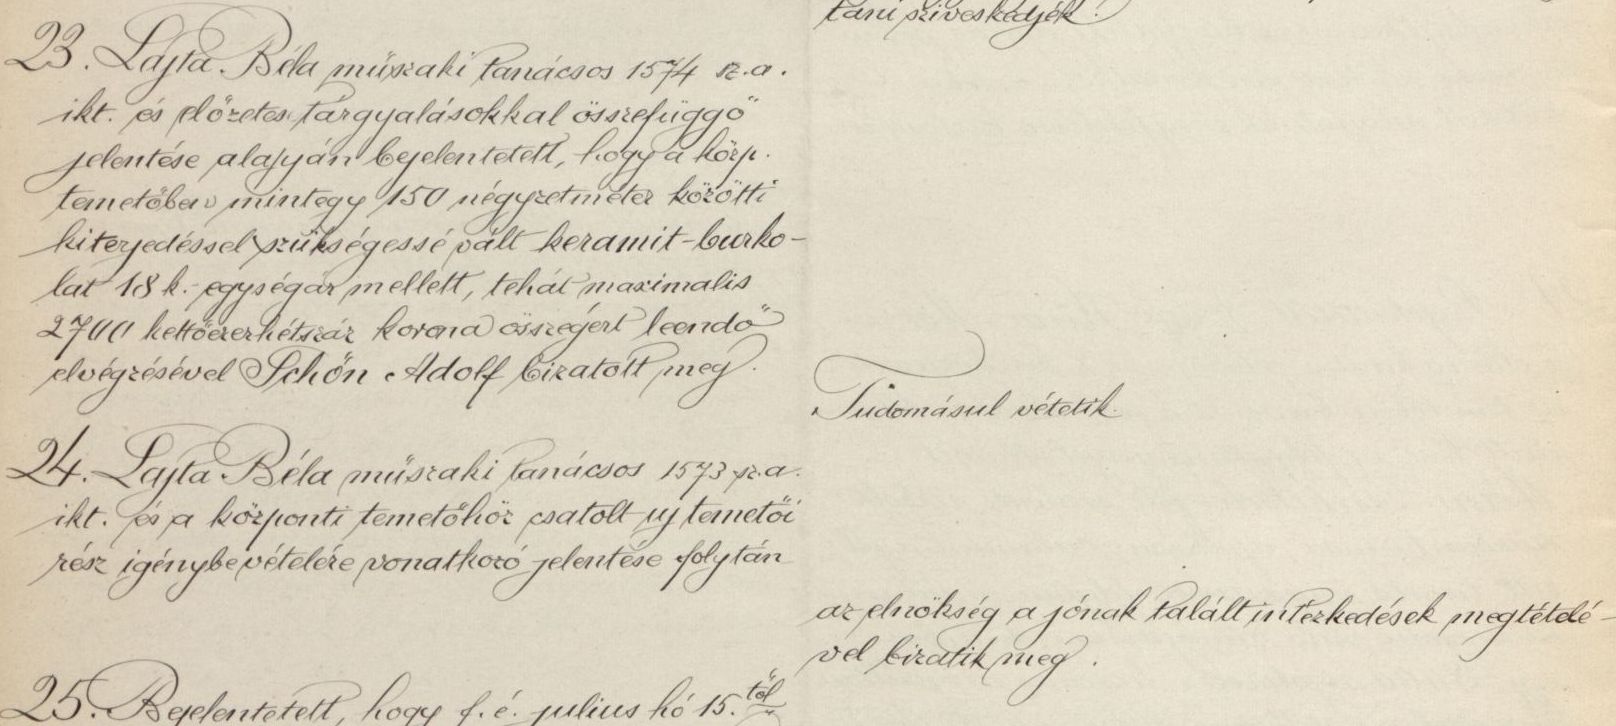 tani sziveskedjék.
23. Lajta Béla műszaki tanácsos 1574 sz. a.
ikt. és előzetes tárgyalásokkal összefüggő
jelentése alapján bejelentetett, hogy a közp.
temetőben mintegy 150 négyzetméter közötti
kiterjedéssel szükségessé vált keramit-burko-
lat 18 k. egységár mellett, tehát maximalis
2700 kettőezerhétszáz korona összegért leendő
elvégzésével Schön Adolf bizatott meg.
Tudomásul vétetik.
24. Lajta Béla műszaki tanácsos 1573 sz. a.
ikt. és a központi temetőhöz csatolt uj temetői
rész igénybevételére vonatkozó jelentése folytán
az elnökség a jónak talált intézkedések megtételé-
vel bizatik meg.
25. Bejelentetett, hogy f. é. julius hó 15.től